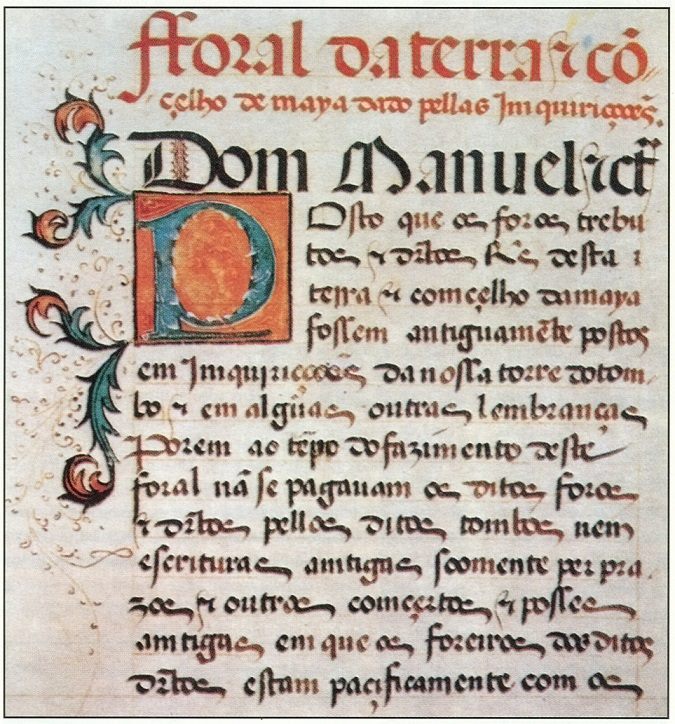 fforal da terra ⁊ cõ
çelho de maya dado pellas Imquiriçoões.
Dom Manuel ⁊ct
Posto que os foros trebu
tos ⁊ dr̃tos Rˢ desta
terra ⁊ comçelho da maya
fossem antiguamẽte postos
em Imquiricoões da nossa torre do tom
bo ⁊ em algũas outras lembranças
Porem ao tẽpo do fazimento deste
foral nã se pagauam os ditos foros
⁊ dr̃tos pellos ditos tombos nem
escrituras amtigas soomente per pra
zos ⁊ outros comçertos ⁊ posses
amtigas em que os foreiros dos ditos
dr̃tos estam paçificamente com os